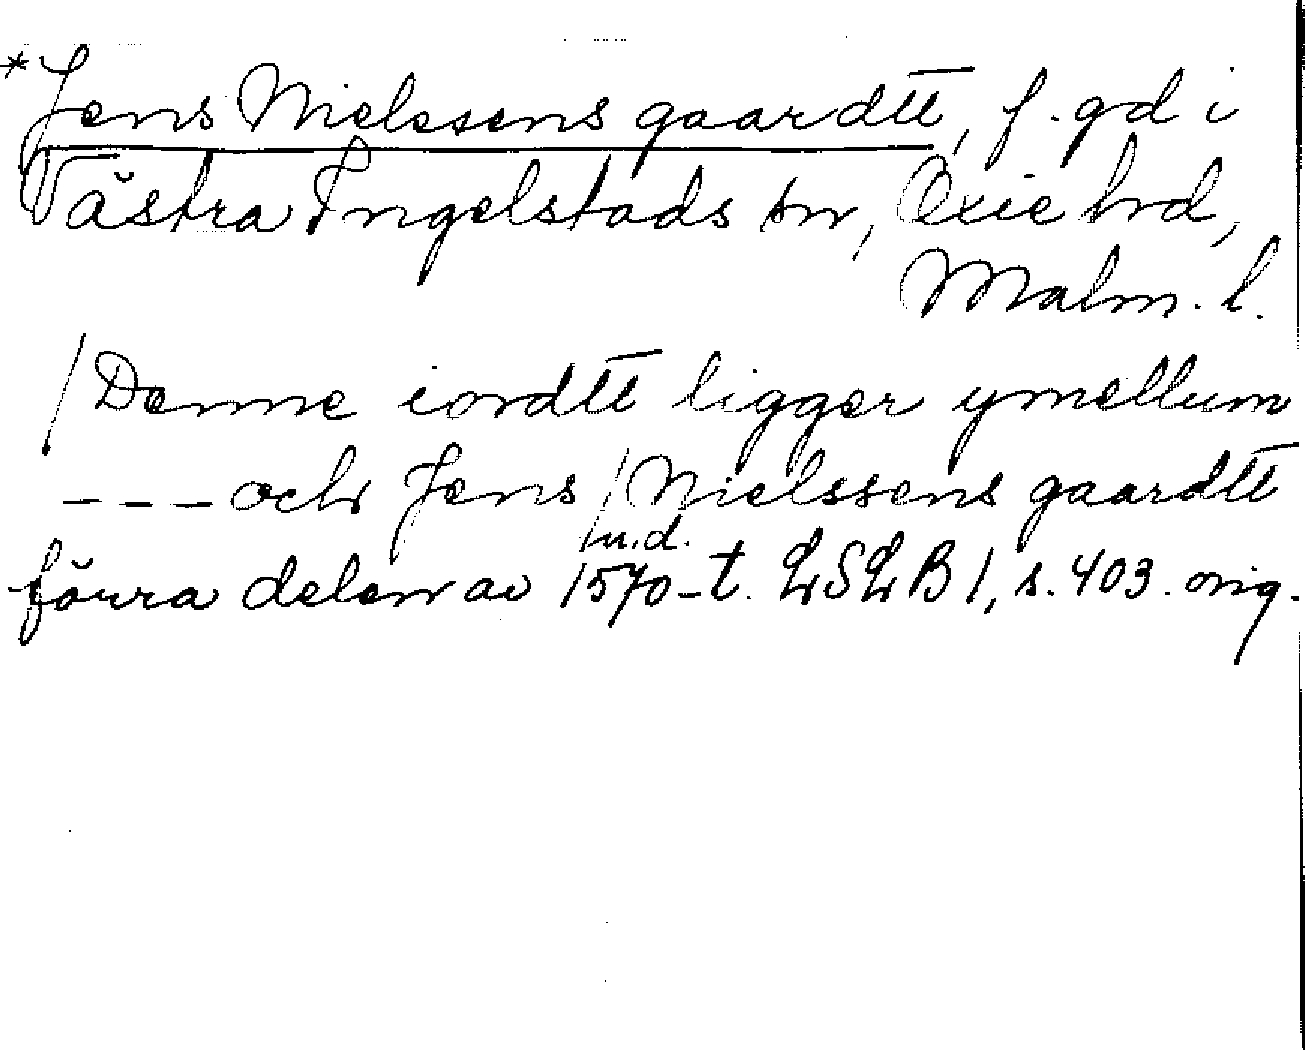 *Jens Nielssens gaardtt, f. gd i
Västra Ingelstads sn, Oxie hd,
Malm. l.
/Denne iordtt ligger ymellum
--- och Jens / Nielssens gaardtt
/u.d.
förra delen av 1570-t. LSLB 1, s. 403. orig.